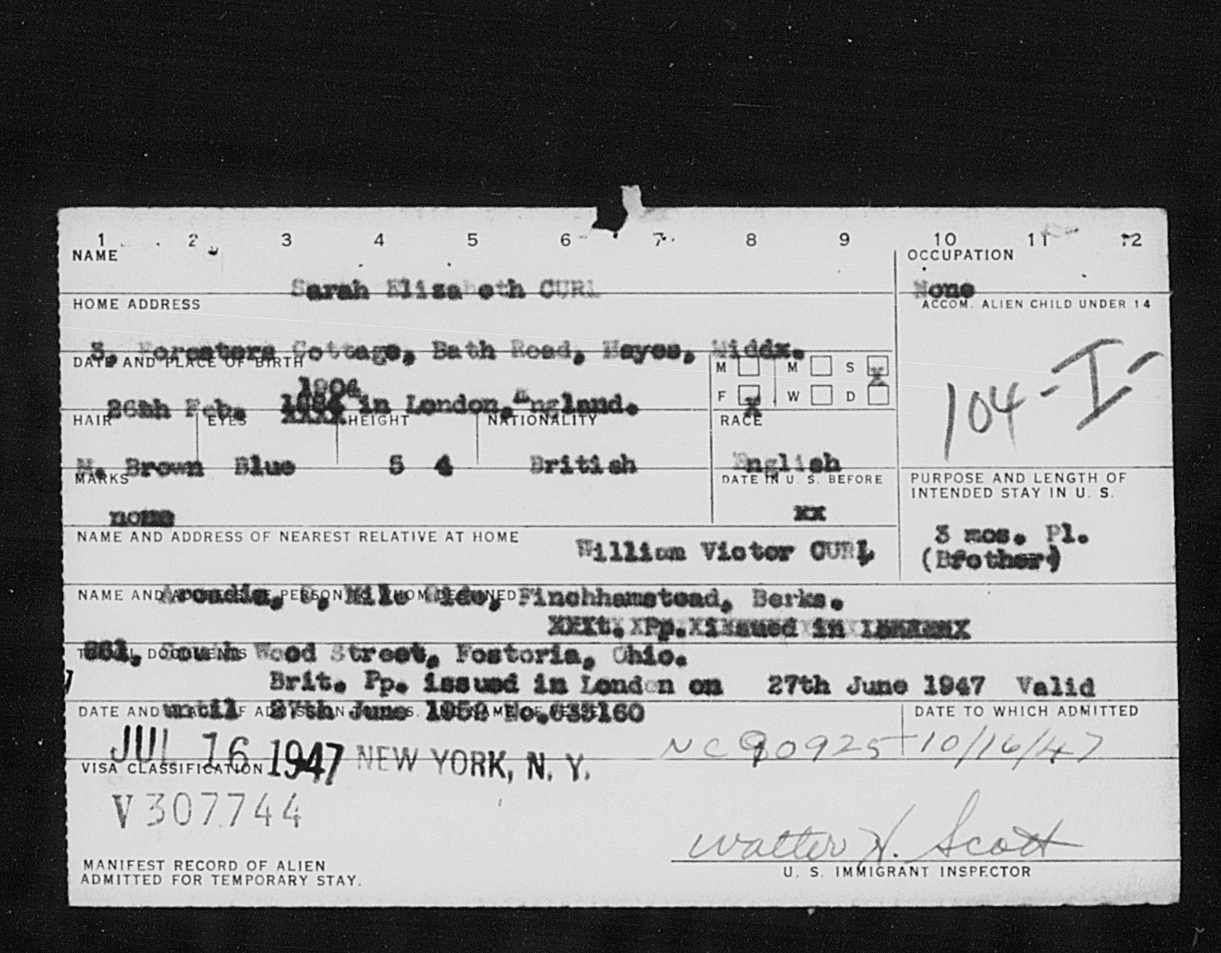 1 2 3 4 5 6 7 8 9 10 11 12
NAME
OCCUPATION
Sarah Elizabeth CURL
None
HOME ADDRESS
ACCOM. ALIEN CHILD UNDER 14
3, Foresters Cottage, Bath Road, Hayes, Middx.
DATE AND PLACE OF BIRTH
M M S X
104-I-
1904
26th Feb. in London, England.
F X W D
HAIR EYES HEIGHT NATIONALITY RACE
M. Brown Blue 5 4 British English
MARKS
DATE IN U. S. BEFORE
PURPOSE AND LENGTH OF
INTENDED STAY IN U. S.
none
xx
NAME AND ADDRESS OF NEAREST RELATIVE AT HOME
3 mos. Pl.
William Victor CURL
(Brother)
NAME AND PERSON TO WHOM DESTINED
Arcadia, Mile Ride, Finchhamstead, Berks.
Pp. issued in
South Wood Street, Fostoria, Ohio.
TRAVEL DOCUMENTS
Brit. Pp. issued in London on 27th June 1947 Valid
until 27th June 1952 No.633160
DATE AND OF
DATE TO WHICH ADMITTED
JUL 16 1947 NEW YORK, N. Y.
NC 90925 10/16/47
VISA CLASSIFICATION
V307744
Walter H. Scott
MANIFEST RECORD OF ALIEN
ADMITTED FOR TEMPORARY STAY.
U. S. IMMIGRANT INSPECTOR